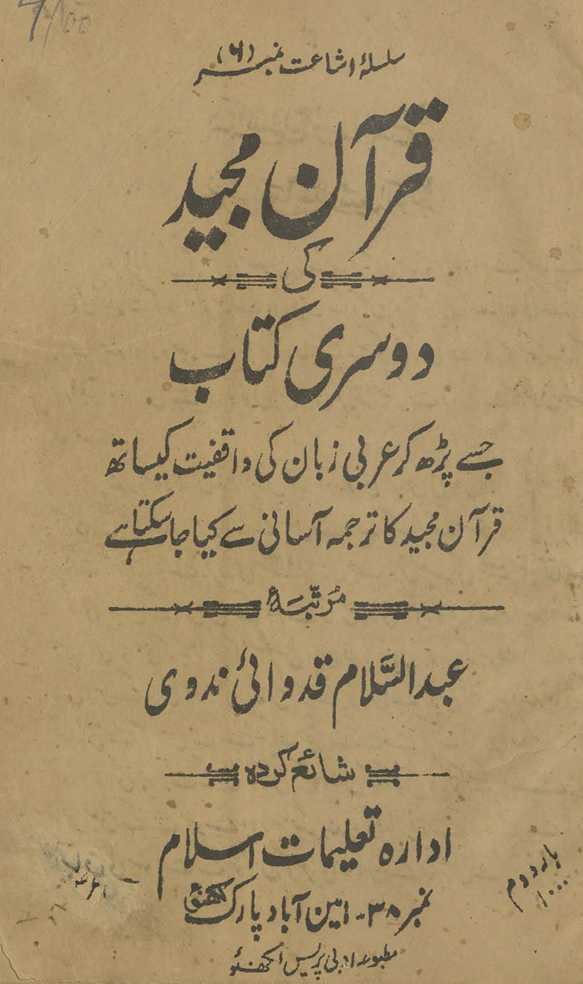 سلسلۂ اشاعت نمبر (۶)
قرآن مجید
کی
دوسری کتاب
جسے پڑھ کر عربی زبان کی واقفیت کیساتھ
قرآن مجید کا ترجمہ آسانی سے کیا جاسکتا ہے
مُرتّبَۂ
عبدالسَّلام قدوائی ندوی
شائع کردہ
ادارہ تعلیمات اسلام
نمبر ۳۸- امین آباد پارک لکھنؤ
مطبوعہ ادبی پریس لکھنؤ
بار دوم
۱۰۰۰